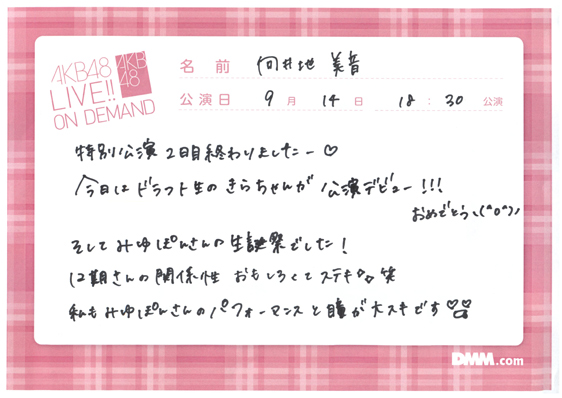 AKB48
LIVE!!
ON DEMAND
AKB
48
名前 向井地 美音
公演日 9月 14日 18:30 公演
特別公演 2日目終わりましたー♡
今日はドラフト生のきらちゃんが 公演デビュー!!!
おめでとうヽ(^o^)ノ
そしてみゆぽんさんの生誕祭でした!
12期さんの関係性 おもしろくてステキ 笑
私もみゆぽんさんのパフォーマンスと瞳が大スキです♡♡
DMM.com